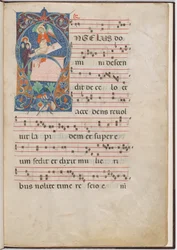 ANGELUS DO
mi ni descen
dit de ce lo et
acce dens revol
vit la pi dem et super e
um sedit et dixit mulie ri
bus nolite time re scio e ni